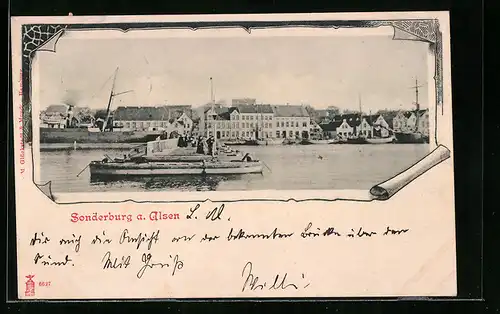 M. Glückstadt & Münden, Hamburg.
Sonderburg a. Alsen L. M.
Dir auch die Ansicht von der bekannten Brücke über den
Sund. Mit Gruß
Willi
6027